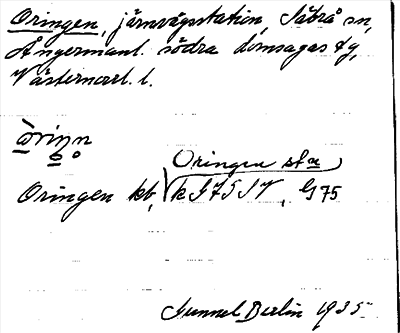 Oringen, järnvägsstation, Säbrå sn,
Ångermanl. södra domsagas tg,
Västernorrl. l.
Oringen stn
Oringen kb, k G 75 SV, G 75
Gunnel Berlin 1935